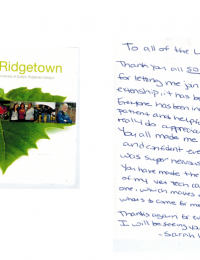 Ridgetown
To all of the L
Thank you all so
for letting me join
externship, it has be
Everyone has been in
patient and helpful
really do appreciat
You all made me
and confident eve
was super nervous
You have made the
of my vet tech ca
one, which makes m
what's to come for m
Thanks again for ev
I will be seeing yo
- Sarah